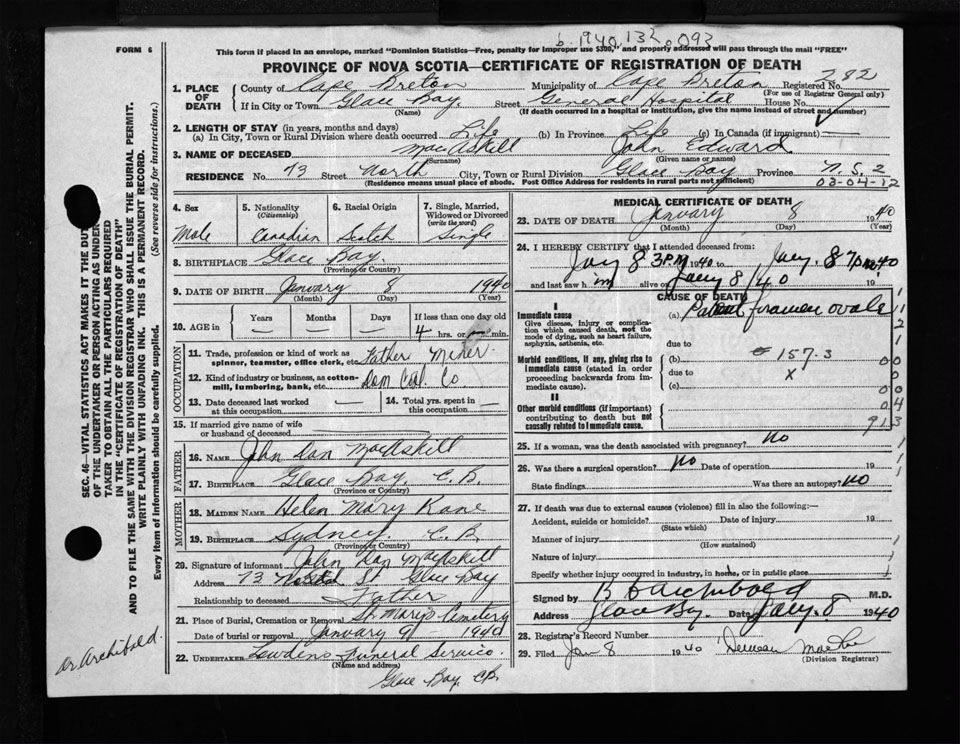 b. 1940.132.093
FORM 6
This form if placed in an envelope, marked "Dominion Statistics—Free, penalty for improper use $300," and properly addressed will pass through the mail "FREE"
PROVINCE OF NOVA SCOTIA—CERTIFICATE OF REGISTRATION OF DEATH
282
1. PLACE OF DEATH
County of Cape Breton Municipality of Cape Breton Registered No.
(For use of Registrar General only)
If in City or Town Glace Bay Street General Hospital House No.
(Name) (If death occurred in a hospital or institution, give the name instead of street and number)
2. LENGTH OF STAY (in years, months and days)
(a) In City, Town or Rural Division where death occurred Life (b) In Province Life (c) In Canada (if immigrant) —
3. NAME OF DECEASED MacAskill John Edward
(Surname) (Given name or names)
RESIDENCE No. 73 Street North City, Town or Rural Division Glace Bay Province N.S. 2
(Residence means usual place of abode. Post Office Address for residents in rural parts not sufficient)
03-04-12
4. Sex
Male
5. Nationality
(Citizenship)
Canadian
6. Racial Origin
Scotch
7. Single, Married, Widowed or Divorced
(write the word)
Single
8. BIRTHPLACE Glace Bay.
(Province or Country)
9. DATE OF BIRTH January 8 1940
(Month) (Day) (Year)
10. AGE in
Years Months Days If less than one day old
— — — 4 hrs. or min.
OCCUPATION
11. Trade, profession or kind of work as spinner, teamster, office clerk, etc. Father Miner.
12. Kind of industry or business, as cotton-mill, lumbering, bank, etc. Dom Coal Co
13. Date deceased last worked at this occupation —
14. Total yrs. spent in this occupation —
15. If married give name of wife or husband of deceased
FATHER
16. Name John Dan MacAskill
17. Birthplace Glace Bay, C.B.
(Province or Country)
MOTHER
18. Maiden Name Helen Mary Kane
19. Birthplace Sydney. C.B.
(Province or Country)
20. Signature of informant John Dan MacAskill
Address 73 North St Glace Bay
Relationship to deceased Father
21. Place of Burial, Cremation or Removal St. Marys Cemetery
Date of burial or removal January 9 1940
22. UNDERTAKER
(Name and address)
Funeral Service.
Glace Bay, CB.
MEDICAL CERTIFICATE OF DEATH
23. DATE OF DEATH January 8 1940
(Month) (Day) (Year)
24. I HEREBY CERTIFY that I attended deceased from:
Jany 8 3 PM 1940 to Jany. 8 7 PM 1940
and last saw him alive on Jany 8 /40
CAUSE OF DEATH
I
Immediate cause
Give disease, injury or complication which caused death, not the mode of dying, such as heart failure, asphyxia, asthenia, etc.
(a) Patent foramen ovale
due to
Morbid conditions, if any, giving rise to immediate cause (stated in order proceeding backwards from immediate cause).
(b) 157.3
due to x
(c)
II
Other morbid conditions (if important) contributing to death but not causally related to immediate cause.
25. If a woman, was the death associated with pregnancy? No
26. Was there a surgical operation? No Date of operation 19
State findings Was there an autopsy? No
27. If death was due to external causes (violence) fill in also the following:—
Accident, suicide or homicide? Date of injury 19
(State which)
Manner of injury
(How sustained)
Nature of injury
Specify whether injury occurred in industry, in home, or in public place
Signed by Archibald M.D.
Address Glace Bay Date Jany. 8 1940
28. Registrar's Record Number
29. Filed Jan 8 1940
(Division Registrar)
SEC. 46—VITAL STATISTICS ACT MAKES IT THE DUTY
OF THE UNDERTAKER OR PERSON ACTING AS UNDERTAKER
TO OBTAIN ALL THE PARTICULARS REQUIRED
IN THE "CERTIFICATE OF REGISTRATION OF DEATH"
AND TO FILE THE SAME WITH THE DIVISION REGISTRAR WHO SHALL ISSUE THE BURIAL PERMIT.
WRITE PLAINLY WITH UNFADING INK. THIS IS A PERMANENT RECORD.
Every item of Information should be carefully supplied. (See reverse side for instructions.)
Dr. Archibald.